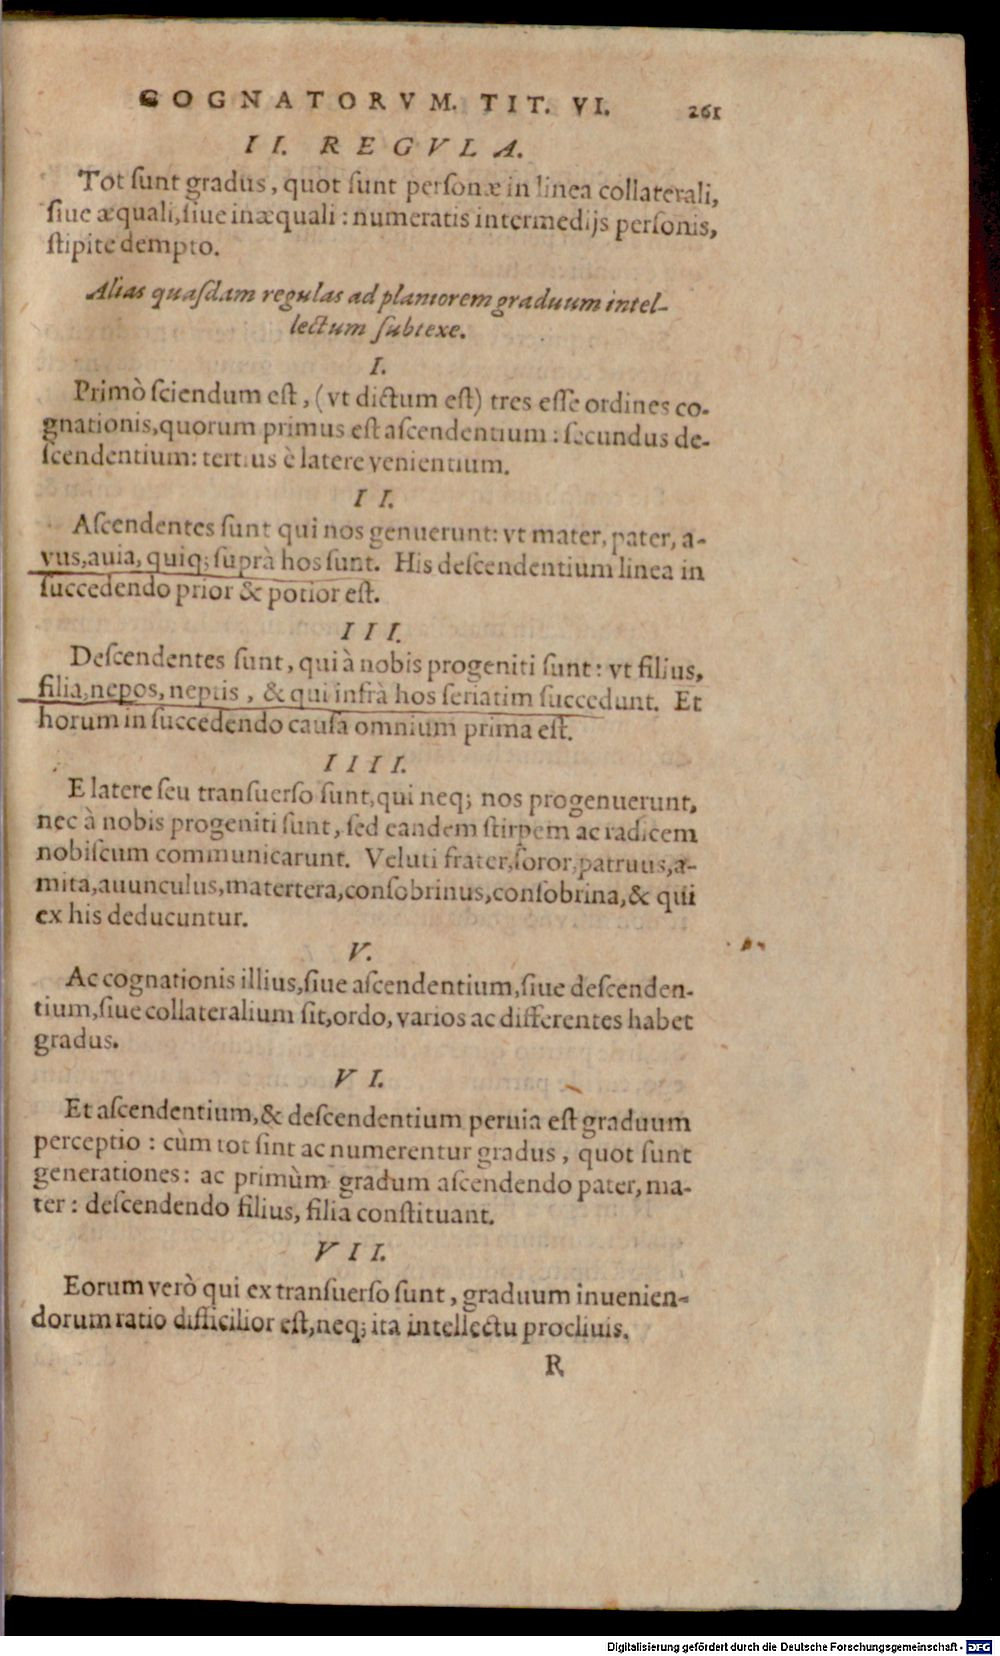 COGNATORVM. TIT. VI. 261
II. REGVLA.
Tot ſunt gradus, quot ſunt perſonæ in linea collaterali,
ſiue æquali, ſiue inæquali: numeratis intermedijs perſonis,
ſtipite dempto.
Alias quaſdam regulas ad planiorem graduum intel-
lectum ſubtexe.
I.
Primò ſciendum eſt, (vt dictum eſt) tres eſſe ordines co-
gnationis, quorum primus eſt aſcendentium: ſecundus de-
ſcendentium: tertius è latere venientium.
II.
Aſcendentes ſunt qui nos genuerunt: vt mater, pater, a-
vus, auia, quiq; ſuprà hos ſunt. His deſcendentium linea in
ſuccedendo prior & potior eſt.
III.
Deſcendentes ſunt, qui à nobis progeniti ſunt: vt filius,
filia, nepos, neptis, & qui infrà hos ſeriatim ſuccedunt. Et
horum in ſuccedendo cauſa omnium prima eſt.
IIII.
E latere ſeu tranſuerſo ſunt, qui neq; nos progenuerunt,
nec à nobis progeniti ſunt, ſed eandem ſtirpem ac radicem
nobiſcum communicarunt. Veluti frater, ſoror, patruus, a-
mita, auunculus, matertera, conſobrinus, conſobrina, & qui
ex his deducuntur.
V.
Ac cognationis illius, ſiue aſcendentium, ſiue deſcenden-
tium, ſiue collateralium ſit, ordo, varios ac differentes habet
gradus.
VI.
Et aſcendentium, & deſcendentium peruia eſt graduum
perceptio: cùm tot ſint ac numerentur gradus, quot ſunt
generationes: ac primùm gradum aſcendendo pater, ma-
ter: deſcendendo filius, filia conſtituant.
VII.
Eorum verò qui ex tranſuerſo ſunt, graduum inuenien-
dorum ratio difficilior eſt, neq; ita intellectu procliuis.
R
Digitalisierung gefördert durch die Deutsche Forschungsgemeinschaft - DFG